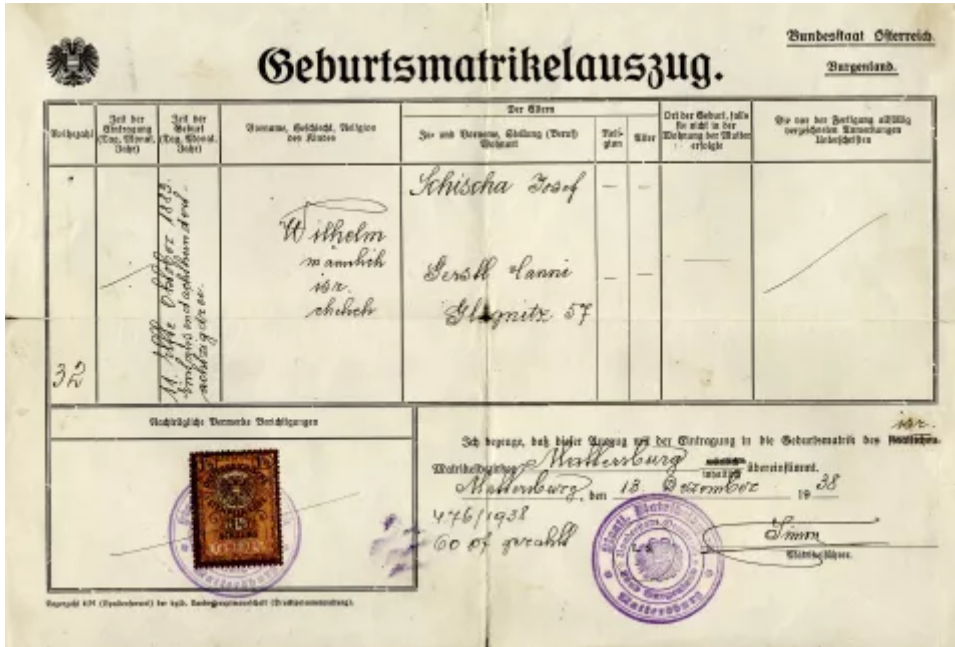 Bundesstaat Österreich.
Burgenland.
Geburtsmatrikelauszug.
Reihezahl
Zeit der
Eintragung
(Tag, Monat,
Jahr)
Zeit der
Geburt
(Tag, Monat,
Jahr)
Vorname, Geschlecht, Religion
des Kindes
Der Eltern
Zu- und Vorname, Stellung (Beruf)
Wohnort
Reli-
gion
Alter
Ort der Geburt, falls
sie nicht in der
Wohnung der Mutter
erfolgte
Die vor der Fertigung allfällig
verzeichneten Anmerkungen
Unterschriften
32
11. Elfte Oktober 1883.
achtzigdrei.
Wilhelm
männlich
isr.
ehelich
Schischa Josef
Gerstl Hanni
57
Nachträgliche Vermerke Berichtigungen
isr.
Ich bezeuge, daß dieser Auszug mit der Eintragung in die Geburtsmatrik des
Matrikelbezirkes Mattersburg inhaltlich übereinstimmt.
Mattersburg, den 13 Dezember 1938
476/1938
60 pf gezahlt
Simon
Matrikelführer.
Mattersburg